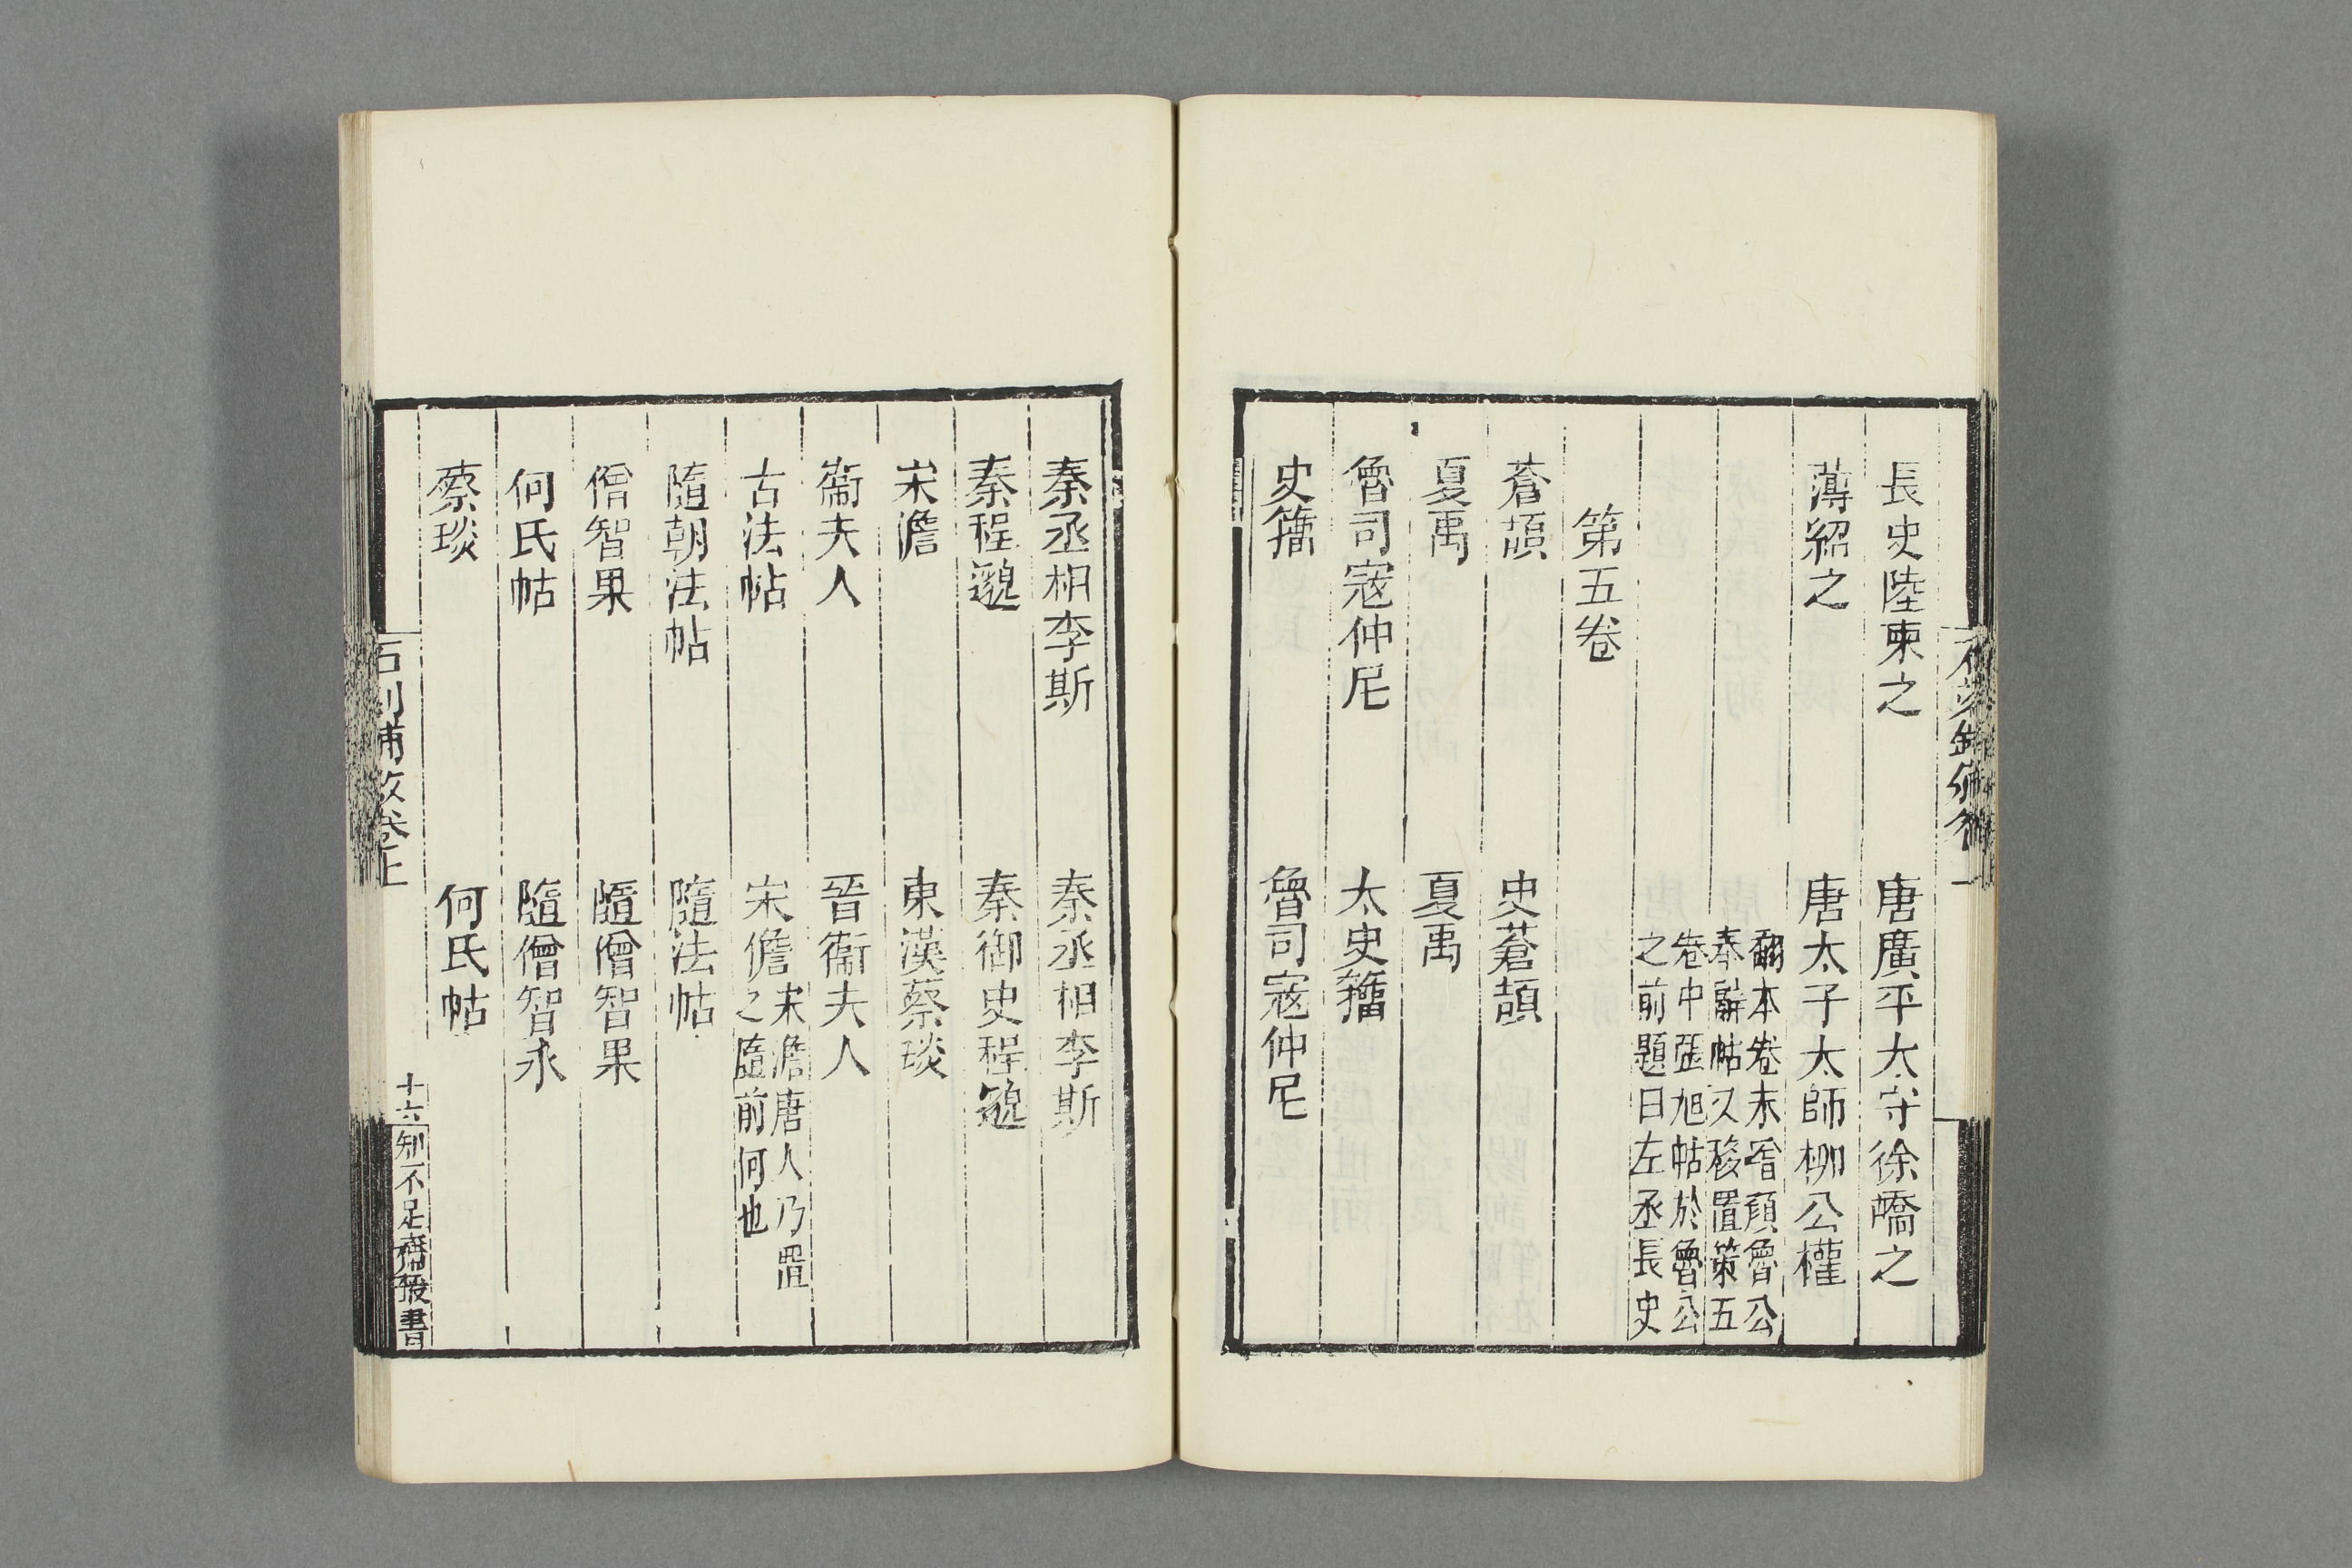 長史陸柬之　唐廣平太守徐嶠之
薄紹之　唐太子太師柳公權
翻本卷末㫺顏魯公
奉辭帖又移置第五
卷中張旭帖於魯公
之前題曰左丞長史
第五卷
蒼頡　史蒼頡
夏禹　夏禹
魯司寇仲尼　太史籒
史籒　魯司寇仲尼
秦丞相李斯　秦丞相李斯
秦程邈　秦御史程邈
宋儋　東漢蔡琰
衞夫人　晉衞夫人
古法帖　宋儋
宋儋唐人乃置
之隨前何也
隨朝法帖　隨法帖
僧智果　隨僧智果
何氏帖　隨僧智永
蔡琰　何氏帖
石刻鋪敘卷上
十六
知不足齋叢書